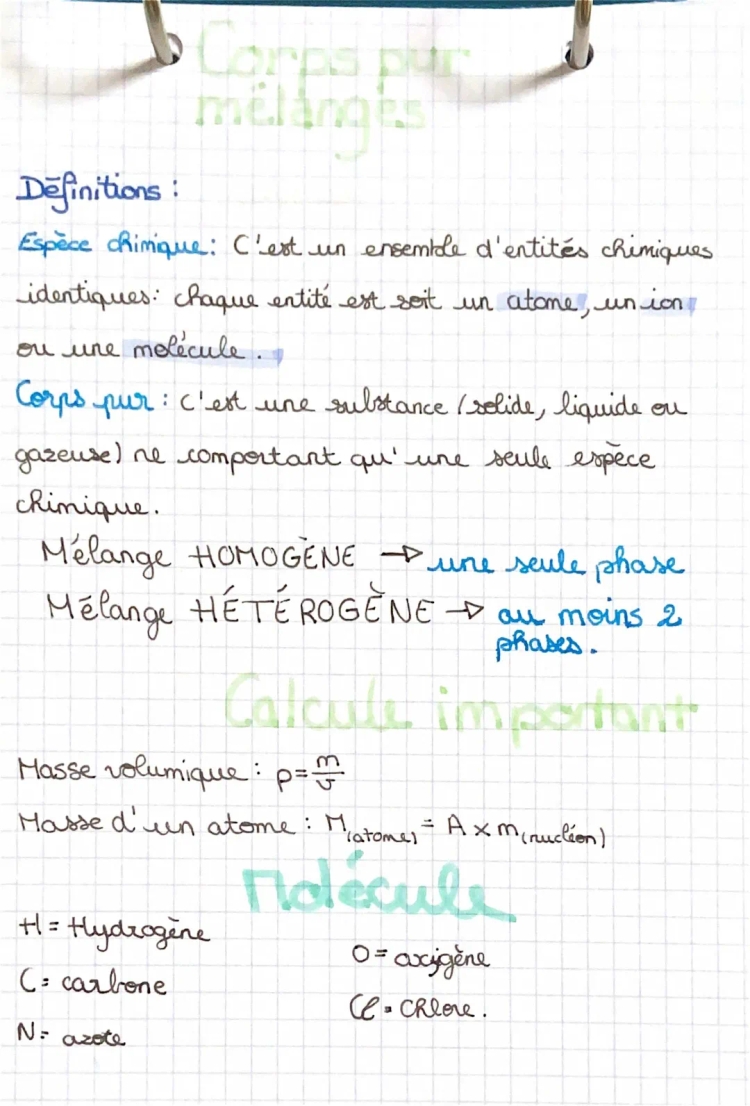 Corps pur
mélanges
Définitions :
Espèce chimique : C'est un ensemble d'entités chimiques
identiques : chaque entité est soit un atome, un ion
ou une molécule.
Corps pur : c'est une substance (solide, liquide ou
gazeuse) ne comportant qu'une seule espèce
chimique.
Mélange HOMOGÈNE → une seule phase
Mélange HÉTÉROGÈNE → au moins 2
phases.
Calcule important
Masse volumique : ρ = m/v
Masse d'un atome : M(atome) = A × m(nucléon)
Molécule
H = Hydrogène
O = oxigène
C = carbone
Cl = Chlore.
N = azote